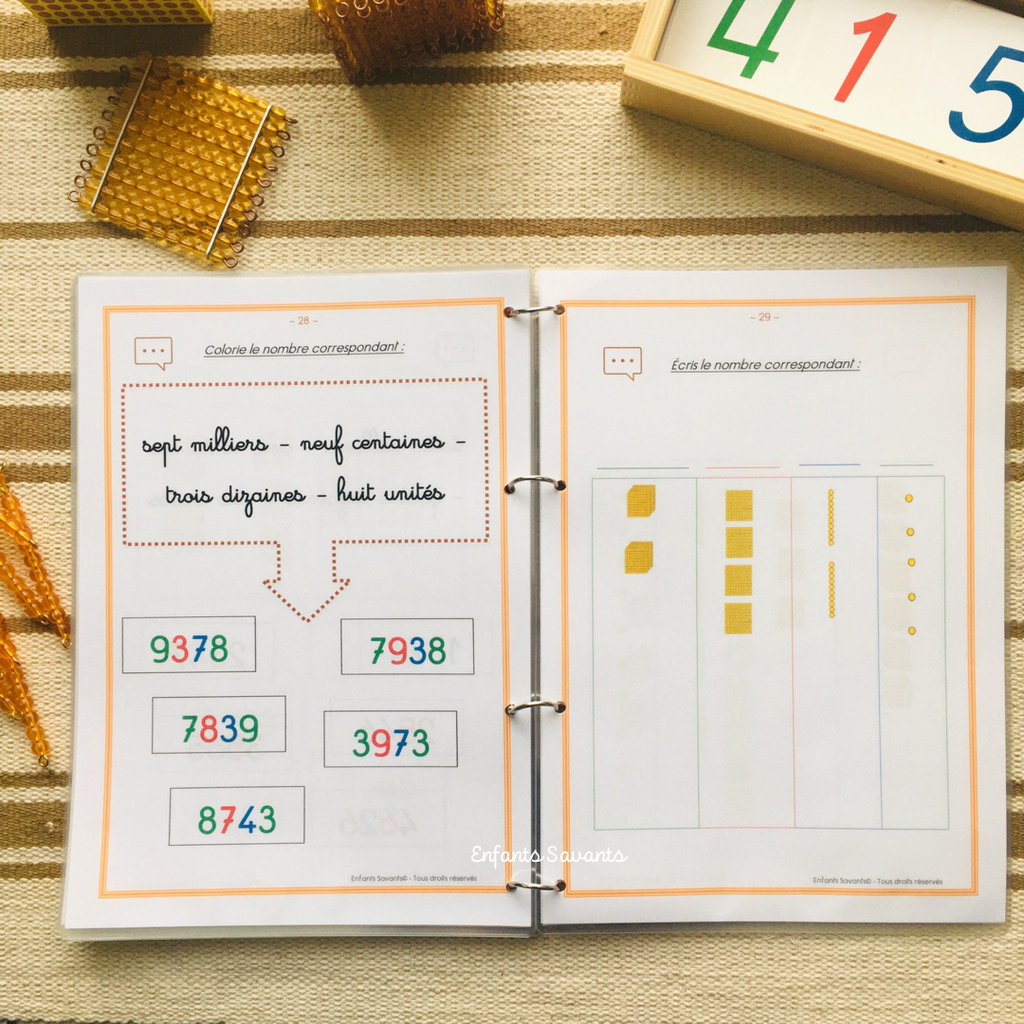 4 1 5
- 28 -
Colorie le nombre correspondant :
sept milliers - neuf centaines -
trois dizaines - huit unités
9378
7938
7839
3973
8743
Enfants Savants© - Tous droits réservés
- 29 -
Écris le nombre correspondant :
Enfants Savants© - Tous droits réservés
Enfants Savants